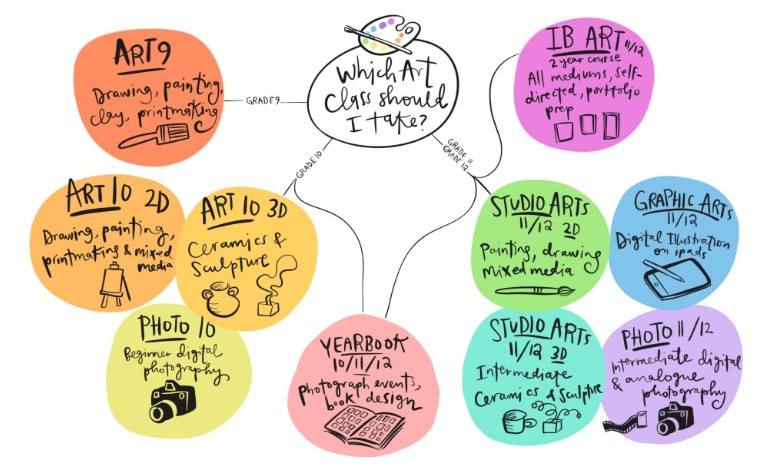 Which Art
Class should
I take?
GRADE 9
ART 9
Drawing, painting,
clay, printmaking
GRADE 10
ART 10 2D
Drawing, painting,
printmaking & mixed
media
ART 10 3D
Ceramics &
Sculpture
PHOTO 10
Beginner digital
photography
YEARBOOK
10/11/12
Photograph events,
book design
GRADE 11
GRADE 12
IB ART 11/12
2 year course
All mediums, self-
directed, portfolio
prep
STUDIO ARTS
11/12 2D
Painting, drawing
mixed media
GRAPHIC ARTS
11/12
Digital Illustration
on ipads
STUDIO ARTS
11/12 3D
Intermediate
Ceramics & Sculptre
PHOTO 11/12
Intermediate digital
& analogue
photography